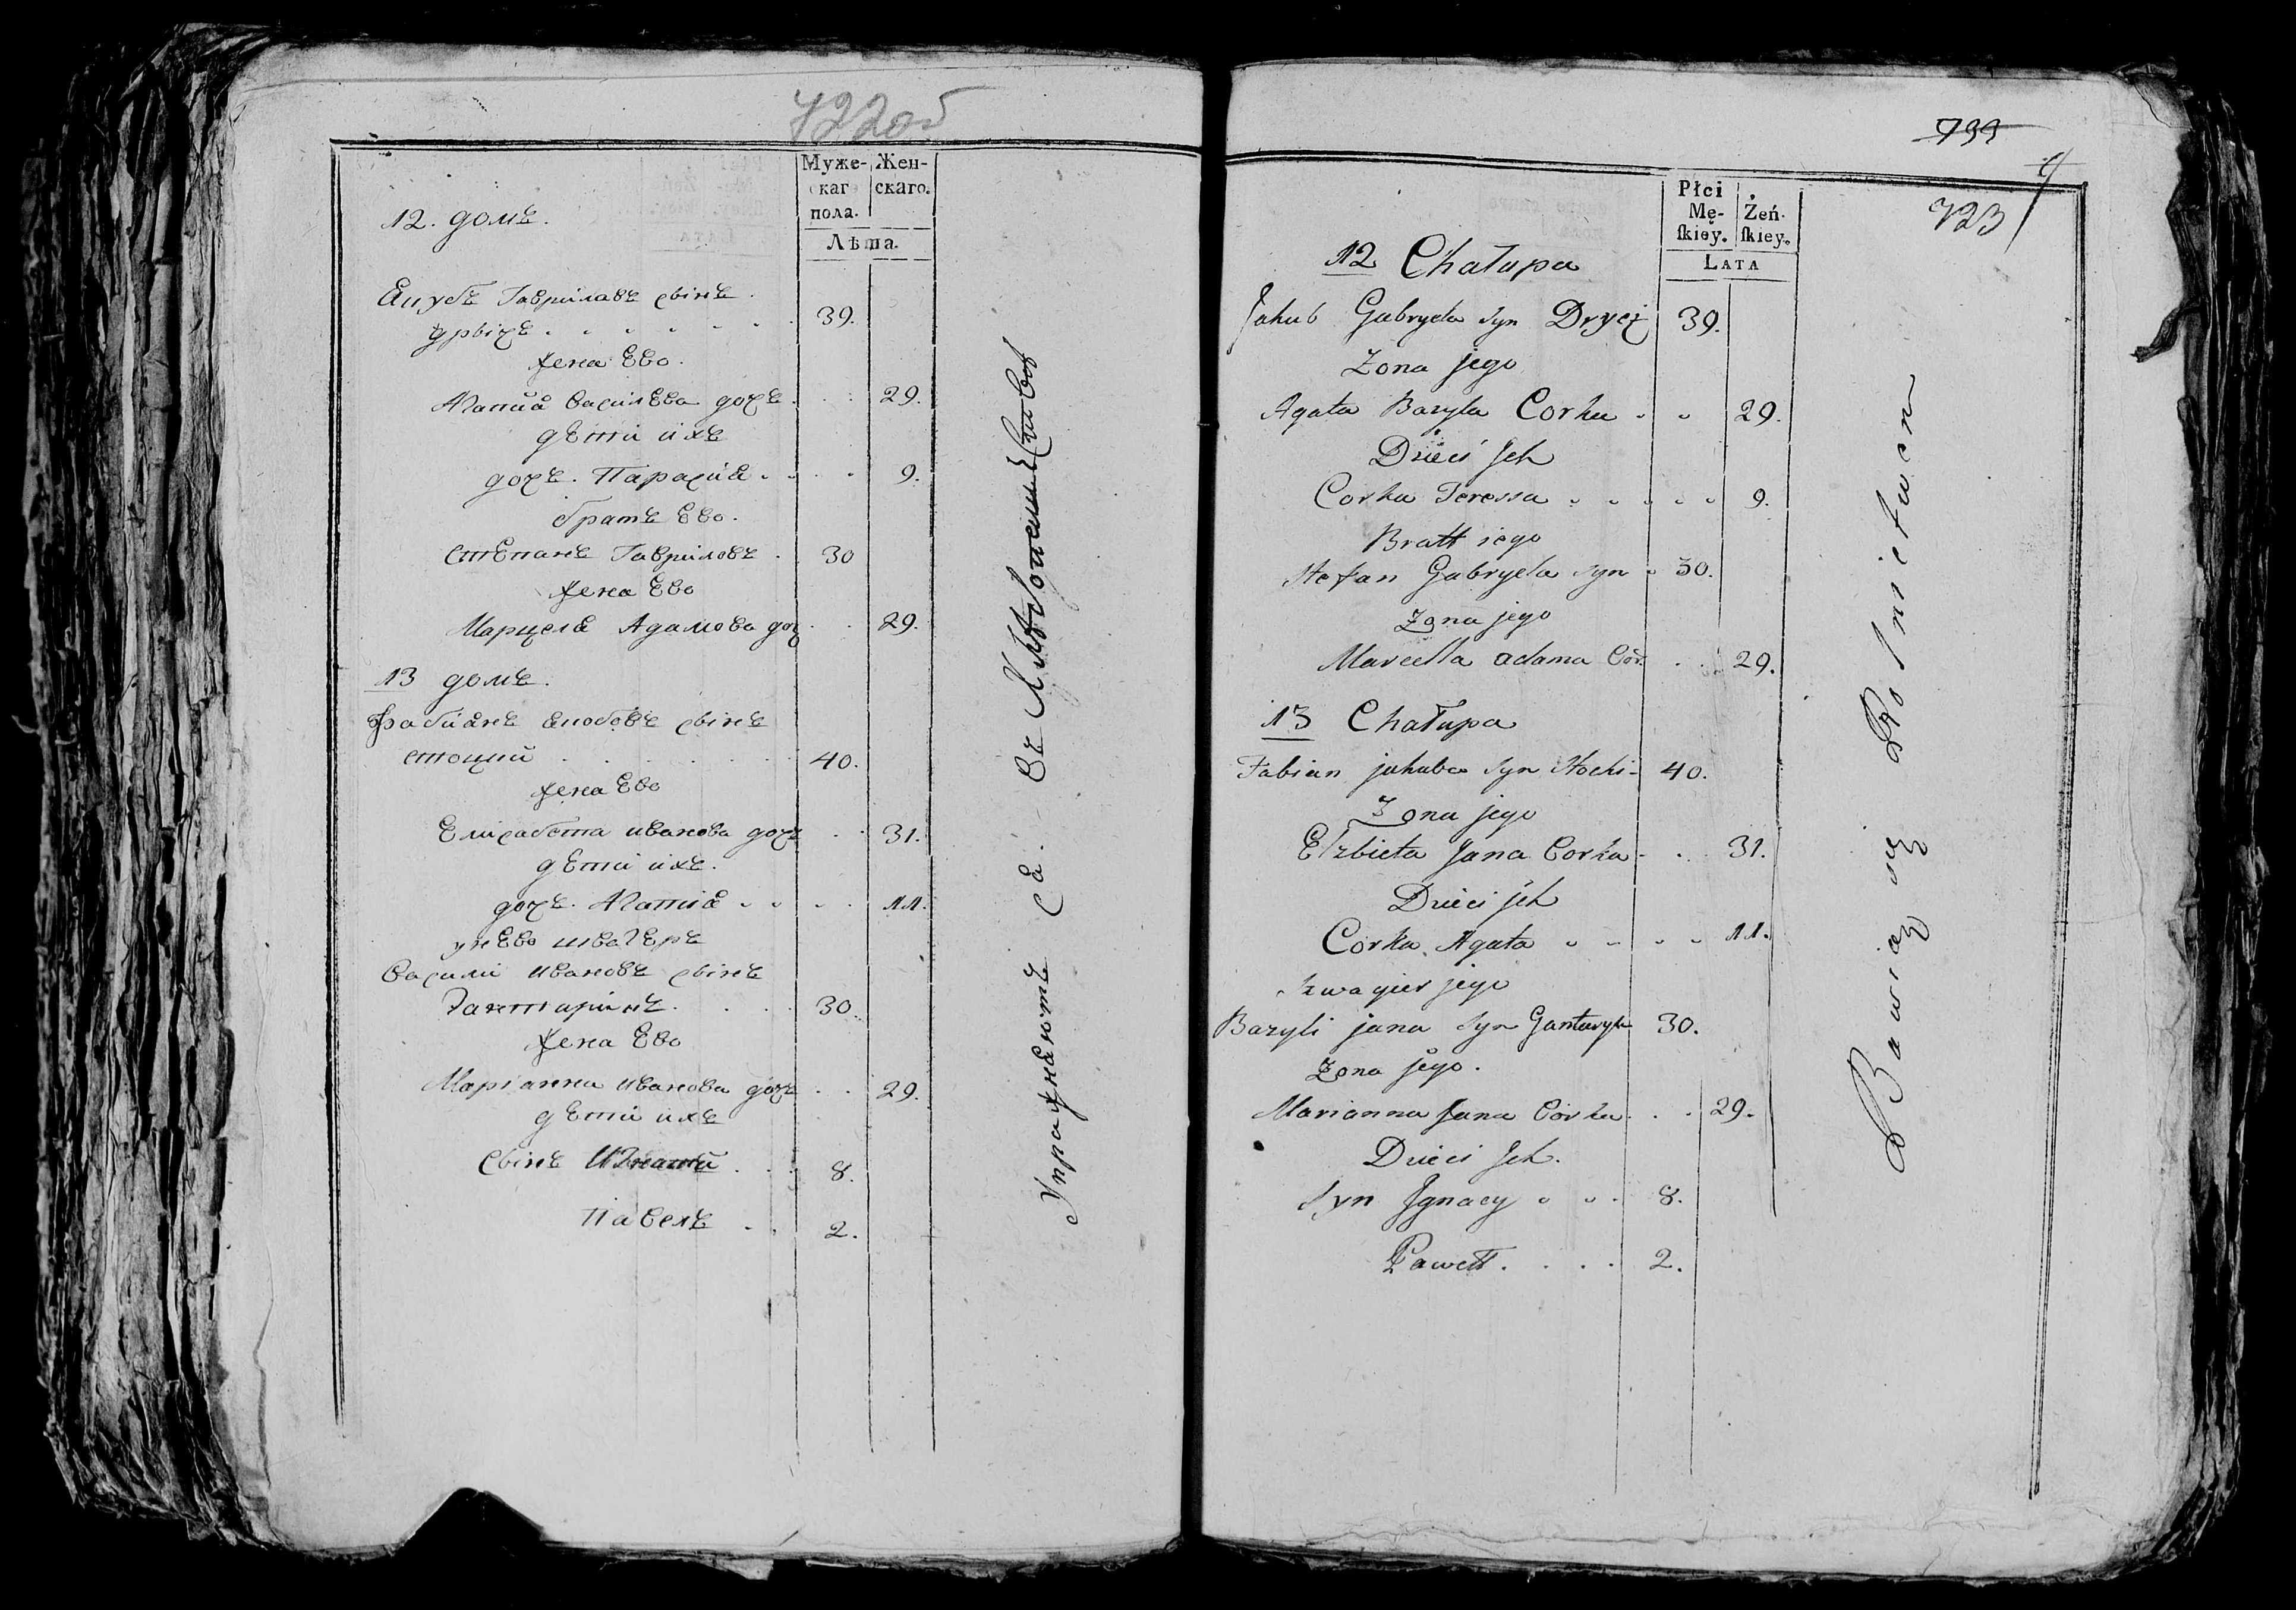 722об
Муже-
скаг
пола.
Жен-
скаго.
Лѣта.
12. домъ.
Якубъ Гавриловъ сынъ
дрычъ 39.
жена Ево.
Агапія василЕва дочъ 29.
дЕти ихъ
дочъ. Парасія 9.
братъ Ево.
СтЕпанъ Гавриловъ 30
жена Ево
Марцеля Адамова доч 29.
13 домъ.
Фабіянъ якобовъ сынъ
стоцкій 40.
жена Ево
Елисабета иванова дочъ 31.
дЕти ихъ.
дочъ. Агапія 11.
у нЕво швагЕръ
Василі ивановъ сынъ
Гантарикъ 30.
жена Ево
Маріанна иванова дочъ 29.
дЕти ихъ
Сынъ Игнатій 8.
ПавЕлъ 2.
Упражняютъ ся въ
799
723
Płci
Mę-
skiey.
Żeń-
skiey.
LATA
12 Chałupa
Jakub Gabryela syn Drycz 39.
Zona jego
Agata Bazyla Corka 29.
Dzieci Jch
Corka Teressa 9.
Bratt iego
Stefan Gabryela syn 30.
Zona jego
Marcella adama Cor. 29.
13 Chałupa
Fabian jakuba syn Stocki 40.
Zona jego
Elzbieta Jana Corka 31.
Dzieci jch
Corka Agata 11.
Szwagier jego
Bazyli jana syn Gantaryk 30.
Zona jego.
Marianna Jana Corka 29.
Dzieci Jch.
Syn Jgnacy 8.
Pawett 2.
Bawią się Rolnictwem